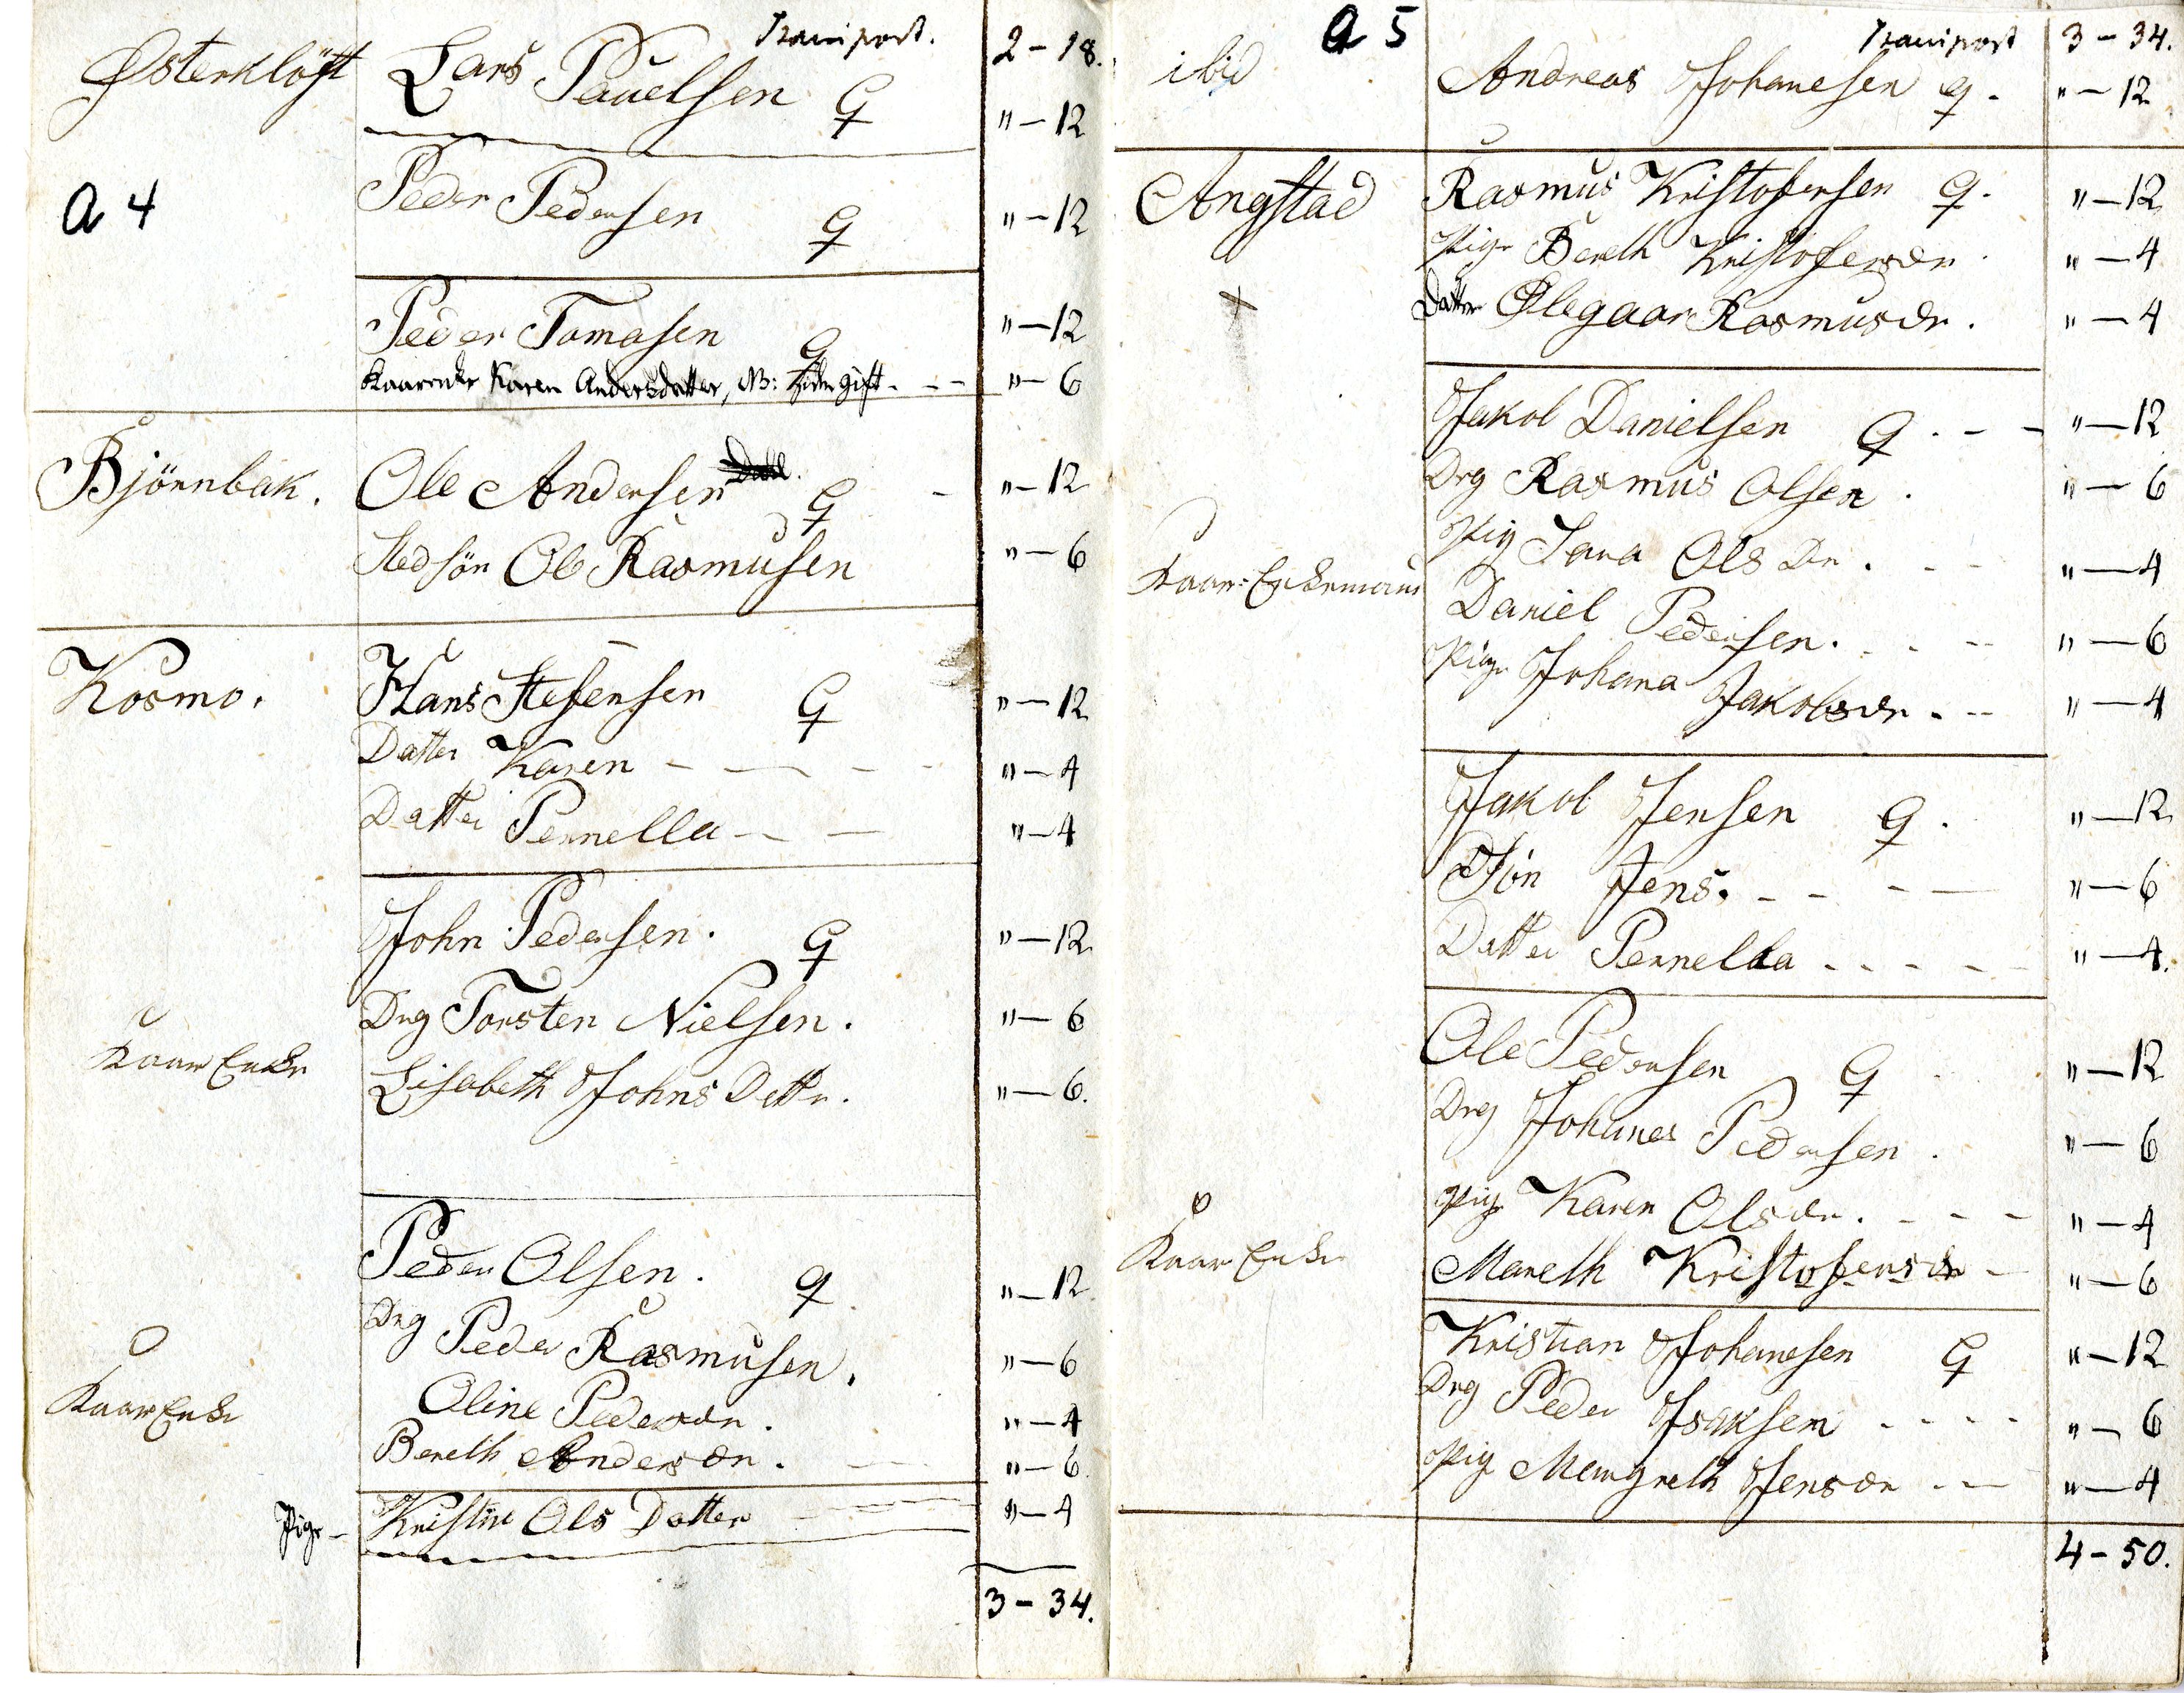 Transport. 2 - 18.
Østerklöft Lars Pauelsen G " - 12
a 4 Peder Pedersen G " - 12
Peder Tomasen G " - 12
Kaarenke Karen Andersdatter, NB: gift - - - " - 6
Björnbak. Ole Andersen G - " - 12
Stedsön Ole Rasmusen " - 6
Kosmo. Hans Stefensen G " - 12
Datter Karen - - - - " - 4
Datter Pernella - - " - 4
John Pedersen. G " - 12
Drg Torsten Nielsen. " - 6
Kaar Enke Lisabeth Johns Dattr. " - 6.
Peder Olsen. G " - 12
Drg Peder Rasmusen. " - 6
Oline Pedersdr. " - 4
Kaar Enke Bereth Andersdr. " - 6
Pige - Kristine Ols Datter " - 4
3 - 34.
a 5 Transport 3 - 34.
ibid Andreas Johanesen G. " - 12
Angstad Rasmus Kristofersen G. " - 12
Pige Bereth Kristofersdr. " - 4
Datter Olegaar Rasmusdr. " - 4
Jakob Danielsen G. - - " - 12
Drg Rasmus Olsen. " - 6
Pig Sara Ols Dr. - - " - 4
Kaar=Enkemand Daniel Pedersen. - - - " - 6
Pige Johana Jakobsdr. - - " - 4
Jakob Jensen G. " - 12
Sön Jens. - - - - " - 6
Datter Pernella - - - - " - 4.
Ole Pedersen G " - 12
Drg Johanes Pedersen. " - 6
Pige Karen Olsdr. - - - " - 4
Kaar Enke Mareth Kristofersdr - " - 6
Kristian Johanesen G " - 12
Drg Peder Isaksen - - - - " - 6
Pig Mangreth Jensdr - - " - 4
4 - 50.